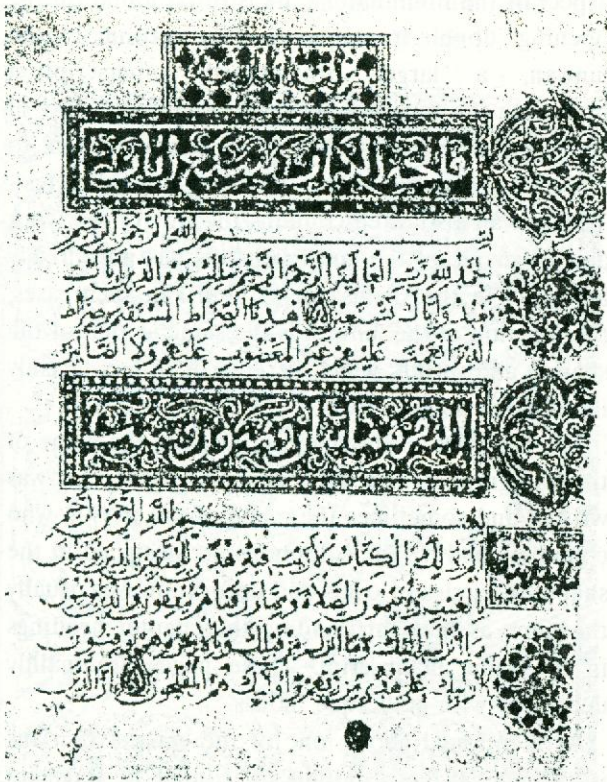 فاتحة الكتاب سبع آيات
بِسْمِ اللَّهِ الرَّحْمَنِ الرَّحِيمِ
الْحَمْدُ لِلَّهِ رَبِّ الْعَالَمِينَ الرَّحْمَنِ الرَّحِيمِ مَالِكِ يَوْمِ الدِّينِ إِيَّاكَ
نَعْبُدُ وَإِيَّاكَ نَسْتَعِينُ اهْدِنَا الصِّرَاطَ الْمُسْتَقِيمَ صِرَاطَ
الَّذِينَ أَنْعَمْتَ عَلَيْهِمْ غَيْرِ الْمَغْضُوبِ عَلَيْهِمْ وَلَا الضَّالِّينَ
البقرة مايتان وثمنون وست
بِسْمِ اللَّهِ الرَّحْمَنِ الرَّحِيمِ
الم ذَلِكَ الْكِتَابُ لَا رَيْبَ فِيهِ هُدًى لِلْمُتَّقِينَ الَّذِينَ يُؤْمِنُونَ
بِالْغَيْبِ وَيُقِيمُونَ الصَّلَاةَ وَمِمَّا رَزَقْنَاهُمْ يُنْفِقُونَ وَالَّذِينَ يُؤْمِنُونَ
بِمَا أُنْزِلَ إِلَيْكَ وَمَا أُنْزِلَ مِنْ قَبْلِكَ وَبِالْآخِرَةِ هُمْ يُوقِنُونَ
أُولَئِكَ عَلَى هُدًى مِنْ رَبِّهِمْ وَأُولَئِكَ هُمُ الْمُفْلِحُونَ إِنَّ الَّذِينَ